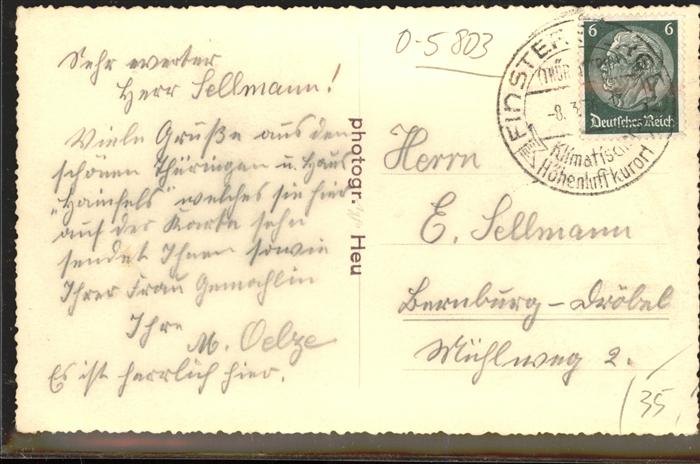 Sehr werter
Herr Sellmann!
Viele Grüße aus dem
schönen Thüringen u. Haus
"Hainfels" welches sie hier
auf der Karte sehn
sendet Ihnen sowie
Ihrer Frau Gemahlin
Ihre
M. Oelze
Es ist herrlich hier.
photogr. Heu
O-5803
FINSTERB
THÜR
-8.3
Klimatisch
Höhenluftkurort
6 6
Deutsches Reich
Herrn
E. Sellmann
Bernburg-Dröbel
Mühlweg 2.
(35,